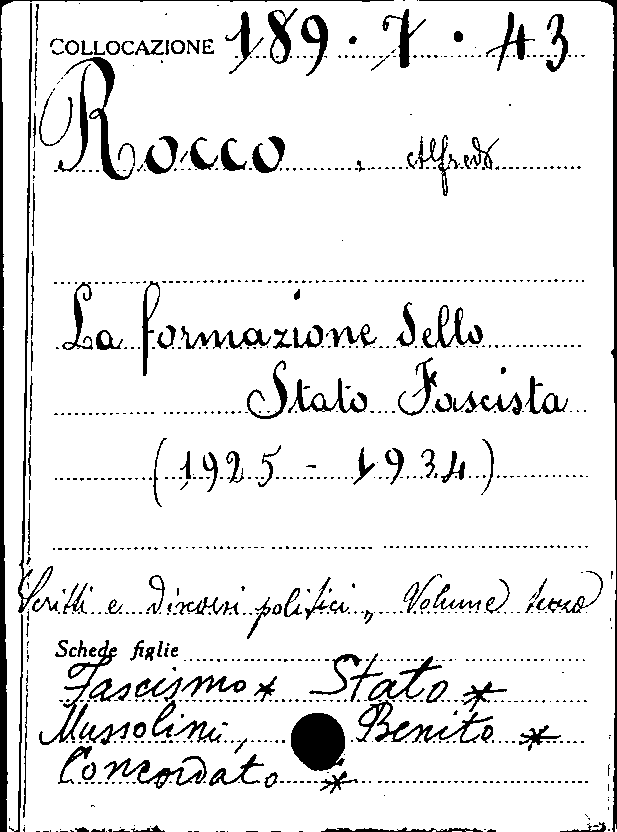 COLLOCAZIONE 189 . 7 . 43
Rocco , Alfredo
La formazione dello
Stato Fascista
(1925 - 1934)
Scritti e discorsi politici „ Volume terzo
Schede figlie
Fascismo * Stato *
Mussolini, Benito *
Concordato *